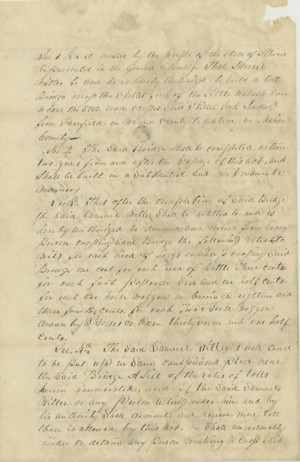 Sec 1 Be it enacted by the People of the State of Illinois
Represented in the General Assembly That Samuel
Miller be and he is hereby authorized to build a toll
Bridge across the Skillet fork of the Little Wabash River
Where the State road crosses said Skillet fork leading
from Fairfield in Wayne County to Salem in Marion
County—
Sec 2 The Said Bridge Shall be completed within
two years from and after the passage of this act and
Shall be built in a Substantial and workmanlike
manner
Sec 3 That after the completion of Said Bridge
the Said Samuel Miller Shall be entitled to and is
hereby authorized to demand and receive from every
Person crossing Said Bridge the following rates to
wit: for each head of hogs or Sheep crossing Said
Bridge one cent for each head of Cattle Three cents
for each foot passenger Six and one half cents
for each one horse Waggon or Carriage eighteen and
three fourths cents for each two horse Waggon
drawn by horses or Oxen thirty Seven and one half
Cents
Sec. 4th The Said Samuel Miller Shall cause
to be put up in Some conspicuous place near
the Said Bridge A list of the rates of tolls
herein enumerated, and if the Said Samuel
Miller or any Person acting under him and by
his authority Shall demand and receive more toll
than is allowed by this act or Shall unreasonably
hinder or detain any Person wishing to cross Said